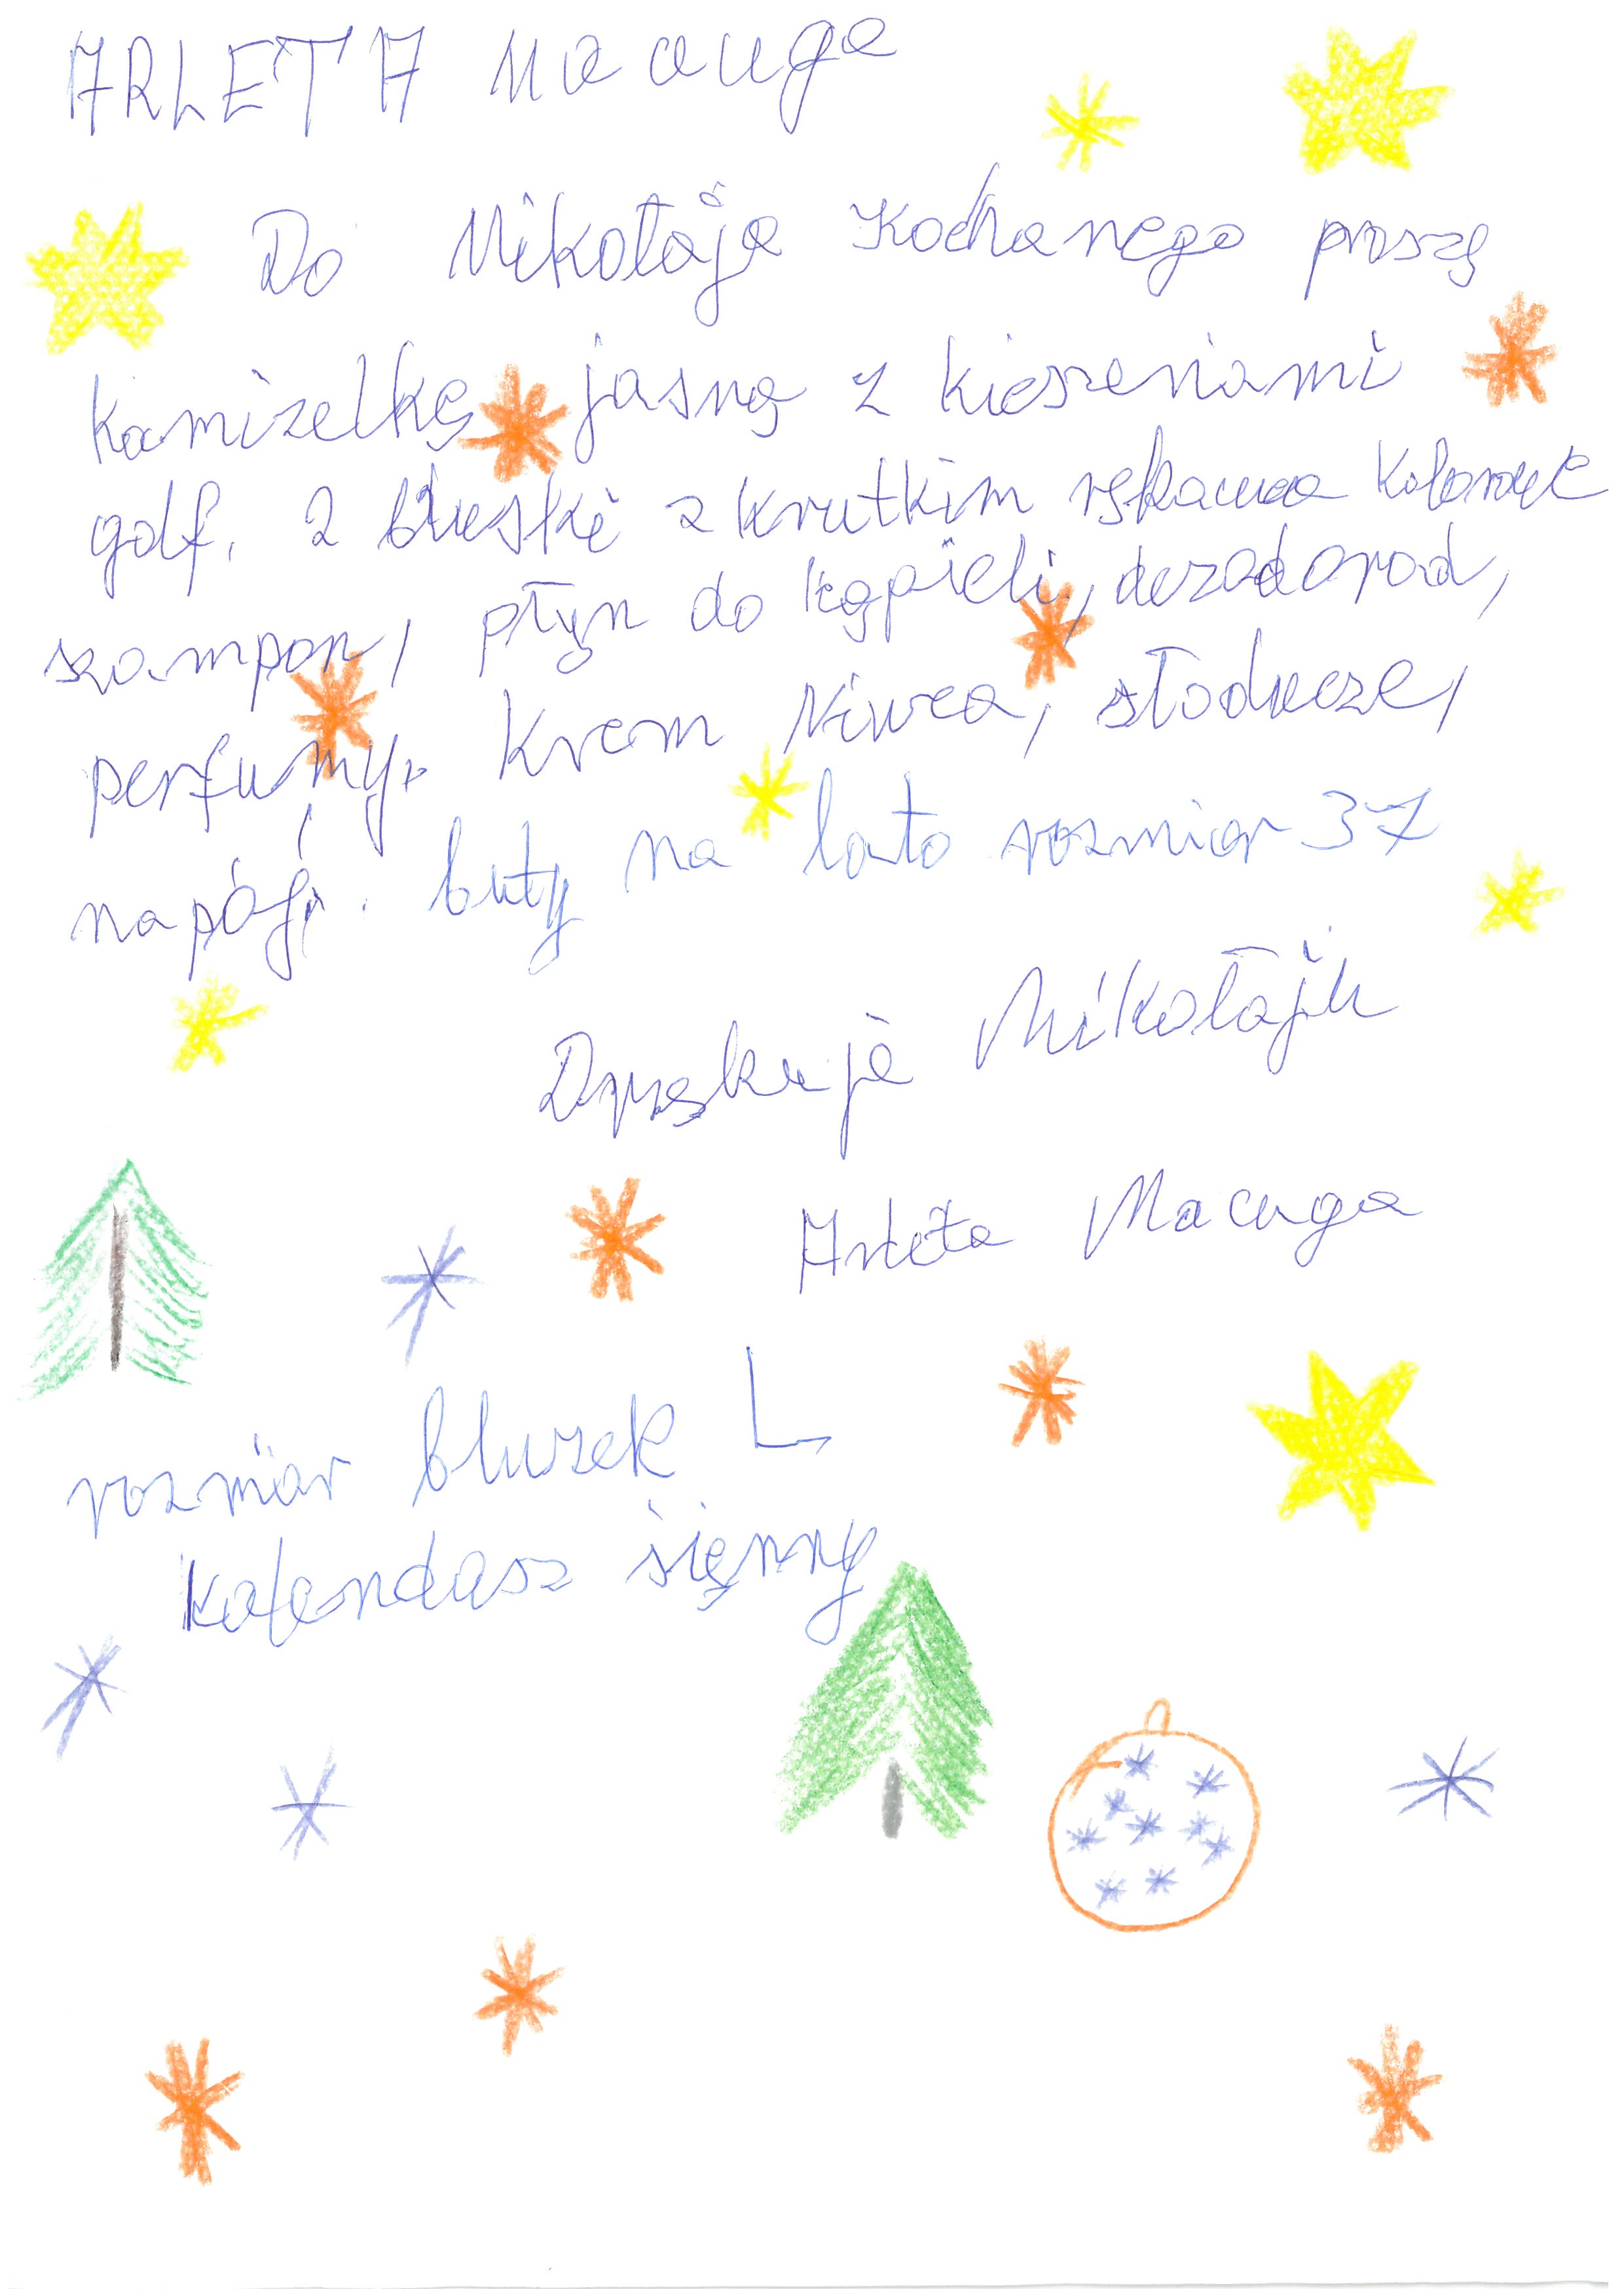 ARLETA Macuga
Do Mikołaja Kochanego proszę
kamizelkę jasną z kieszeniami
golf. 2 bluski z krutkim rękawa kolorwe
szampon, płyn do kąpieli, dezodorod,
perfumy. Krem Nivea, słodycze,
napóji. buty na lato rozmiar 37
Dzyękuje Mikołaju
Arleta Macuga
rozmiar bluzek L
kalendasz sięnny